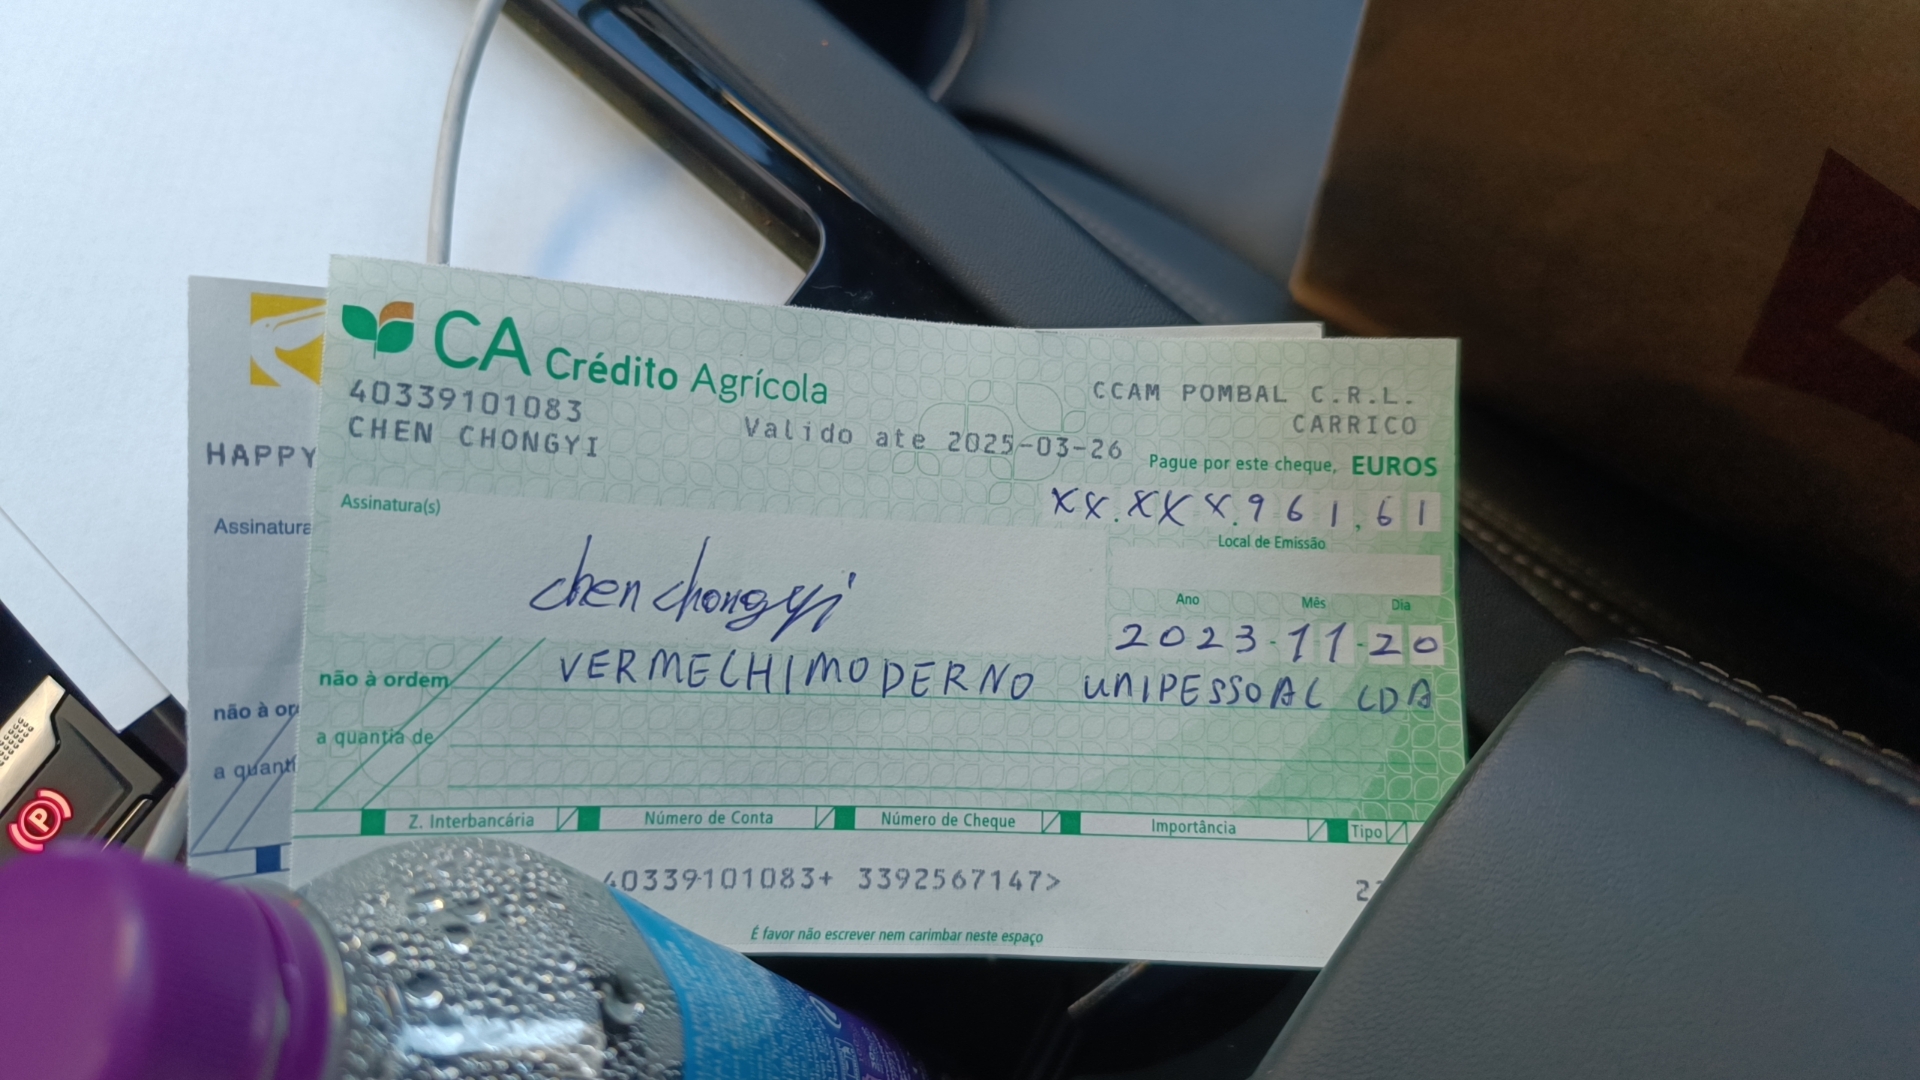 CA Crédito Agrícola
40339101083
CHEN CHONGYI
Valido ate 2025-03-26
CCAM POMBAL C.R.L.
CARRICO
Pague por este cheque, EUROS
XX.XXX.961,61
Assinatura(s)
Local de Emissão
chen chongyi
Ano Mês Dia
2023-11-20
não à ordem
VERMECHIMODERNO UNIPESSOAL LDA
a quantia de
Z. Interbancária Número de Conta Número de Cheque Importância Tipo
40339101083+ 3392567147>
É favor não escrever nem carimbar neste espaço
HAPPY
Assinatura
não à or
a quanti
P